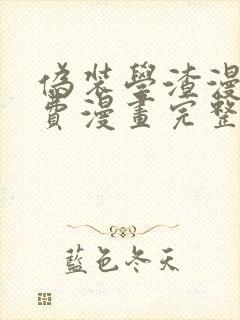 偽装學渣漫
費漫畫完整
藍色冬天